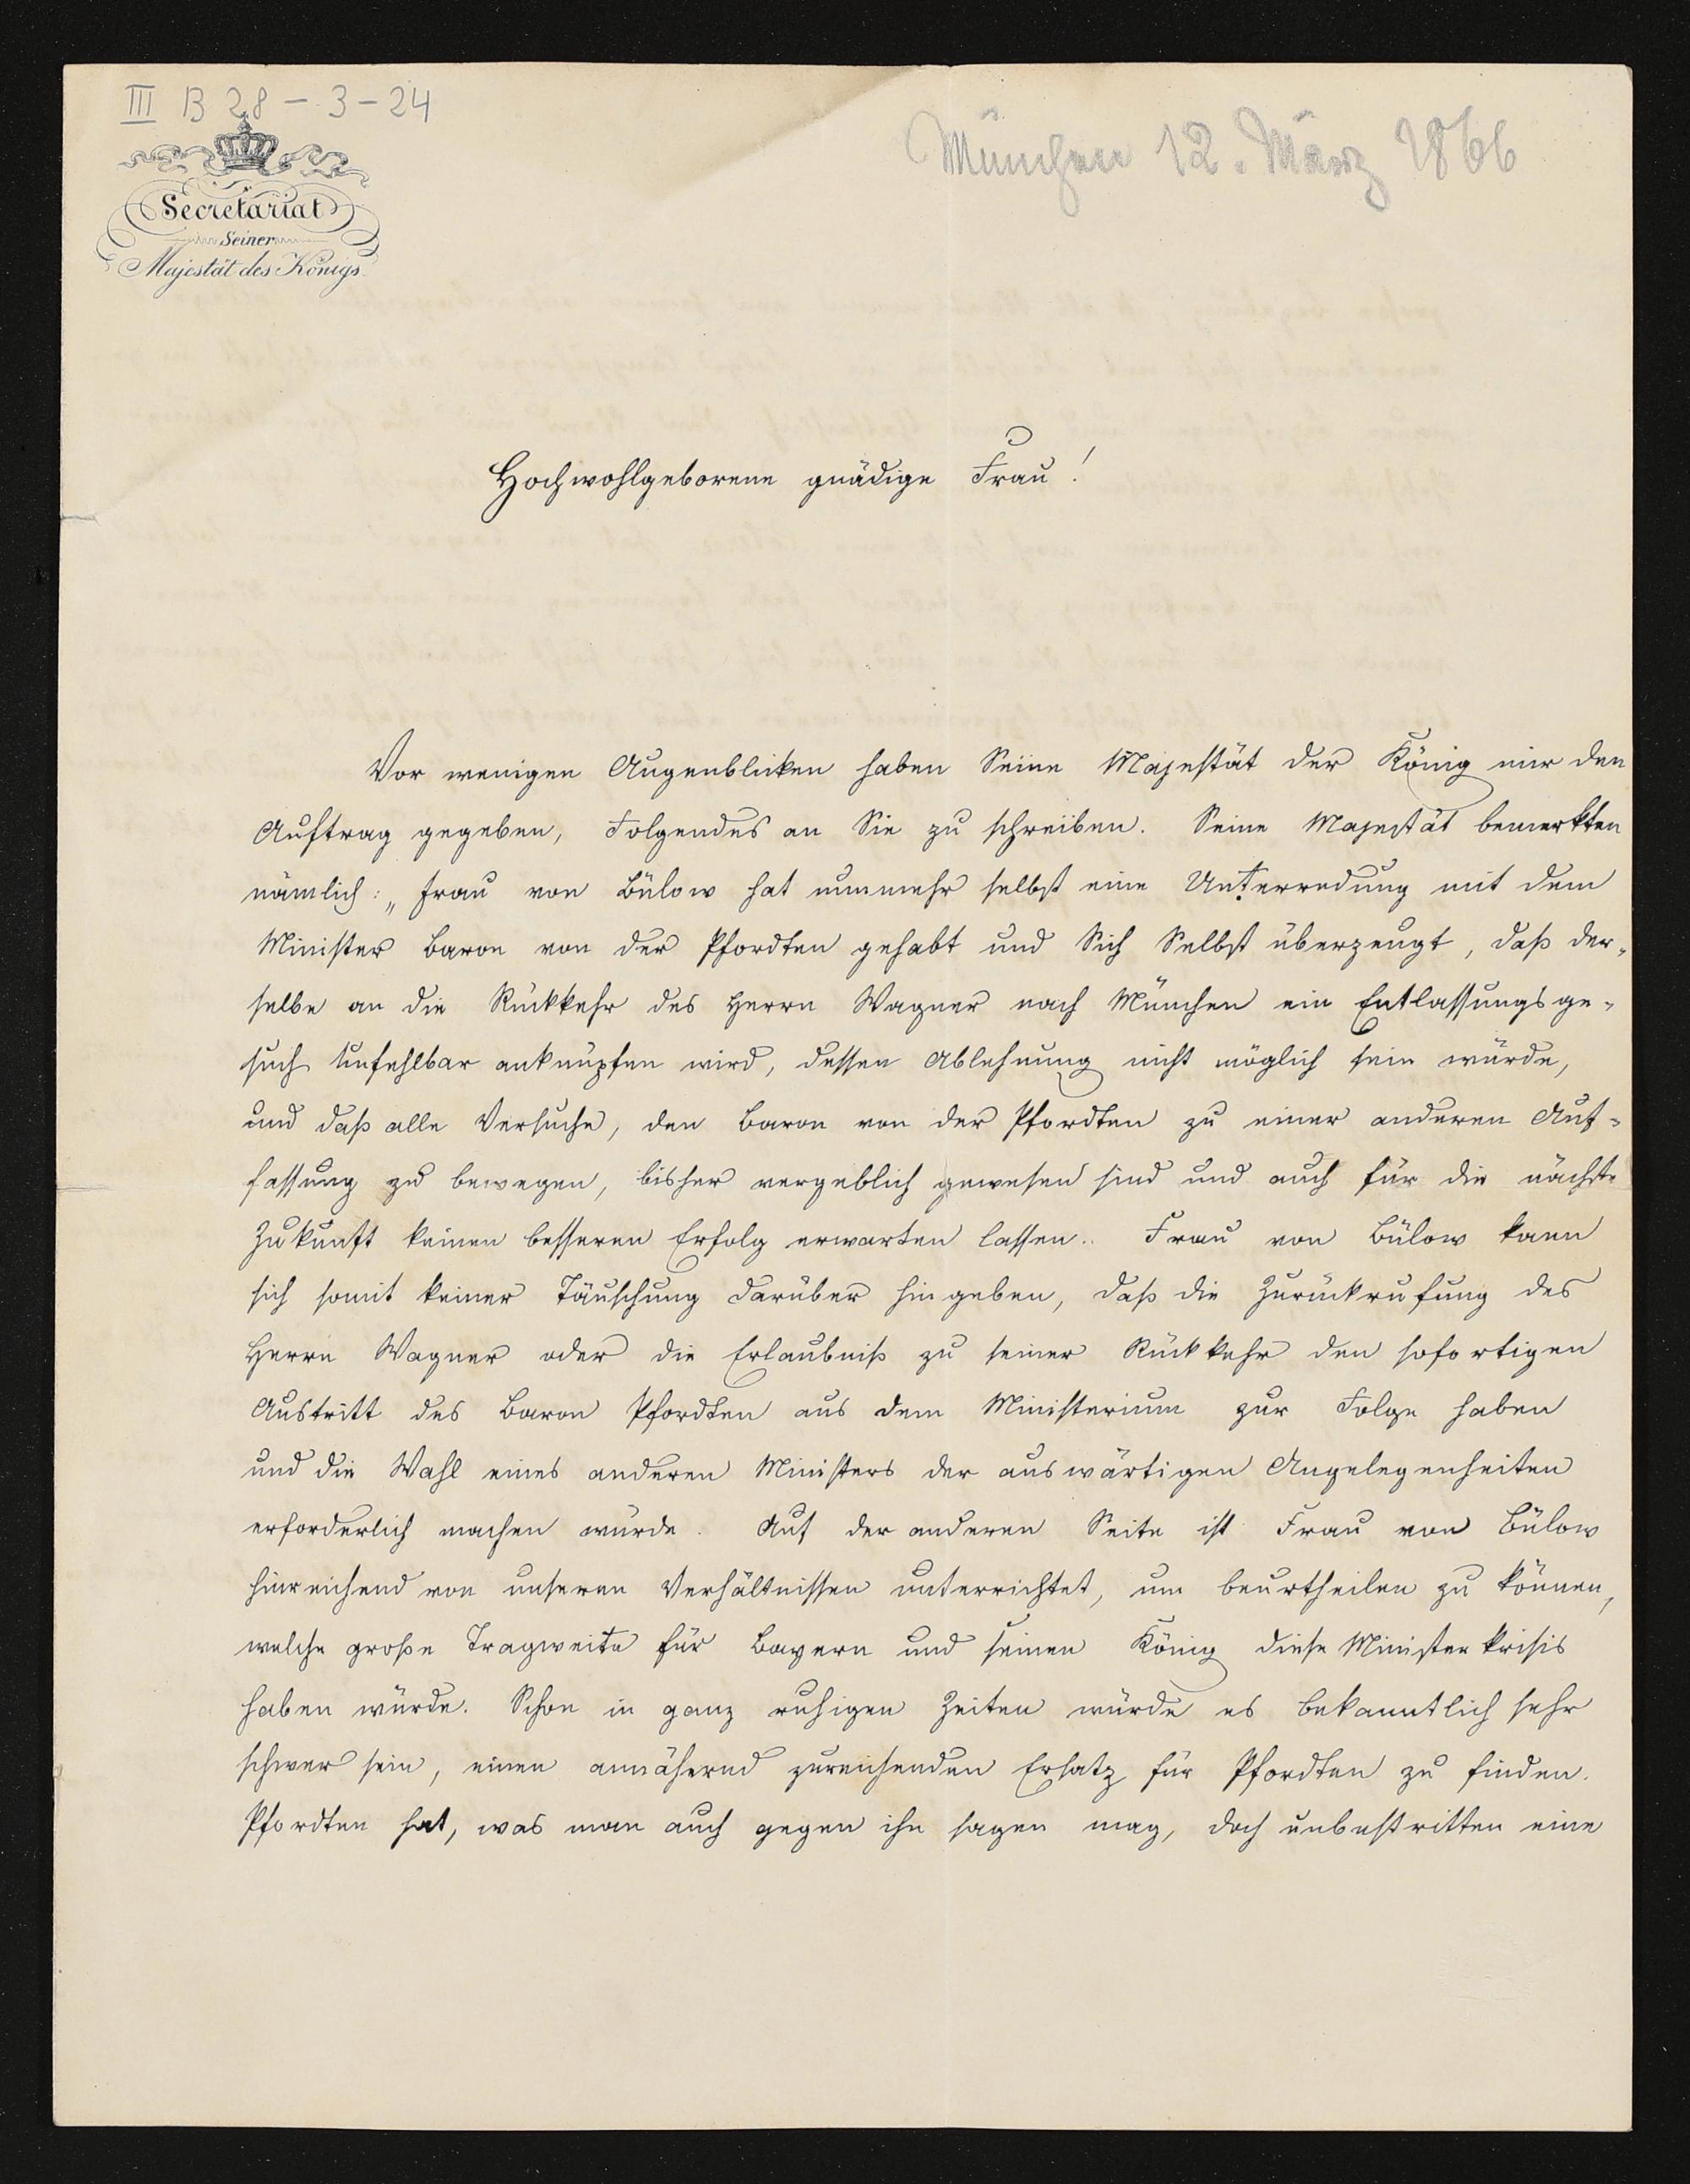 III B 28 - 3 - 24
München 12. März 1866
Secretariat
Seiner
Majestät des Königs.
Hochwohlgeborene gnädige Frau!
Vor wenigen Augenblicken haben Seine Majestät der König mir den
Auftrag gegeben, Folgendes an Sie zu schreiben. Seine Majestät bemerkten
nämlich: „Frau von Bülow hat nunmehr selbst eine Unterredung mit dem
Minister Baron von der Pfordten gehabt und Sich Selbst überzeugt, daß der-
selbe an die Rückkehr des Herrn Wagner nach München ein Entlassungsge-
such unfehlbar anknüpfen wird, dessen Ablehnung nicht möglich sein würde,
und daß alle Versuche, den Baron von der Pfordten zu einer anderen Auf-
fassung zu bewegen, bisher vergeblich gewesen sind und auch für die nächste
Zukunft keinen besseren Erfolg erwarten lassen. Frau von Bülow kann
sich somit keiner Täuschung darüber hingeben, daß die Zurückrufung des
Herrn Wagner oder die Erlaubniß zu seiner Rückkehr den sofortigen
Austritt des Baron Pfordten aus dem Ministerium zur Folge haben
und die Wahl eines anderen Ministers der auswärtigen Angelegenheiten
erforderlich machen würde. Auf der anderen Seite ist Frau von Bülow
hinreichend von unseren Verhältnissen unterrichtet, um beurtheilen zu können,
welche große Tragweite für Bayern und seinen König diese Ministerkrisis
haben würde. Schon in ganz ruhigen Zeiten würde es bekanntlich sehr
schwer sein, einen annähernd zureichenden Ersatz für Pfordten zu finden.
Pfordten hat, was man auch gegen ihn sagen mag, doch unbestritten eine